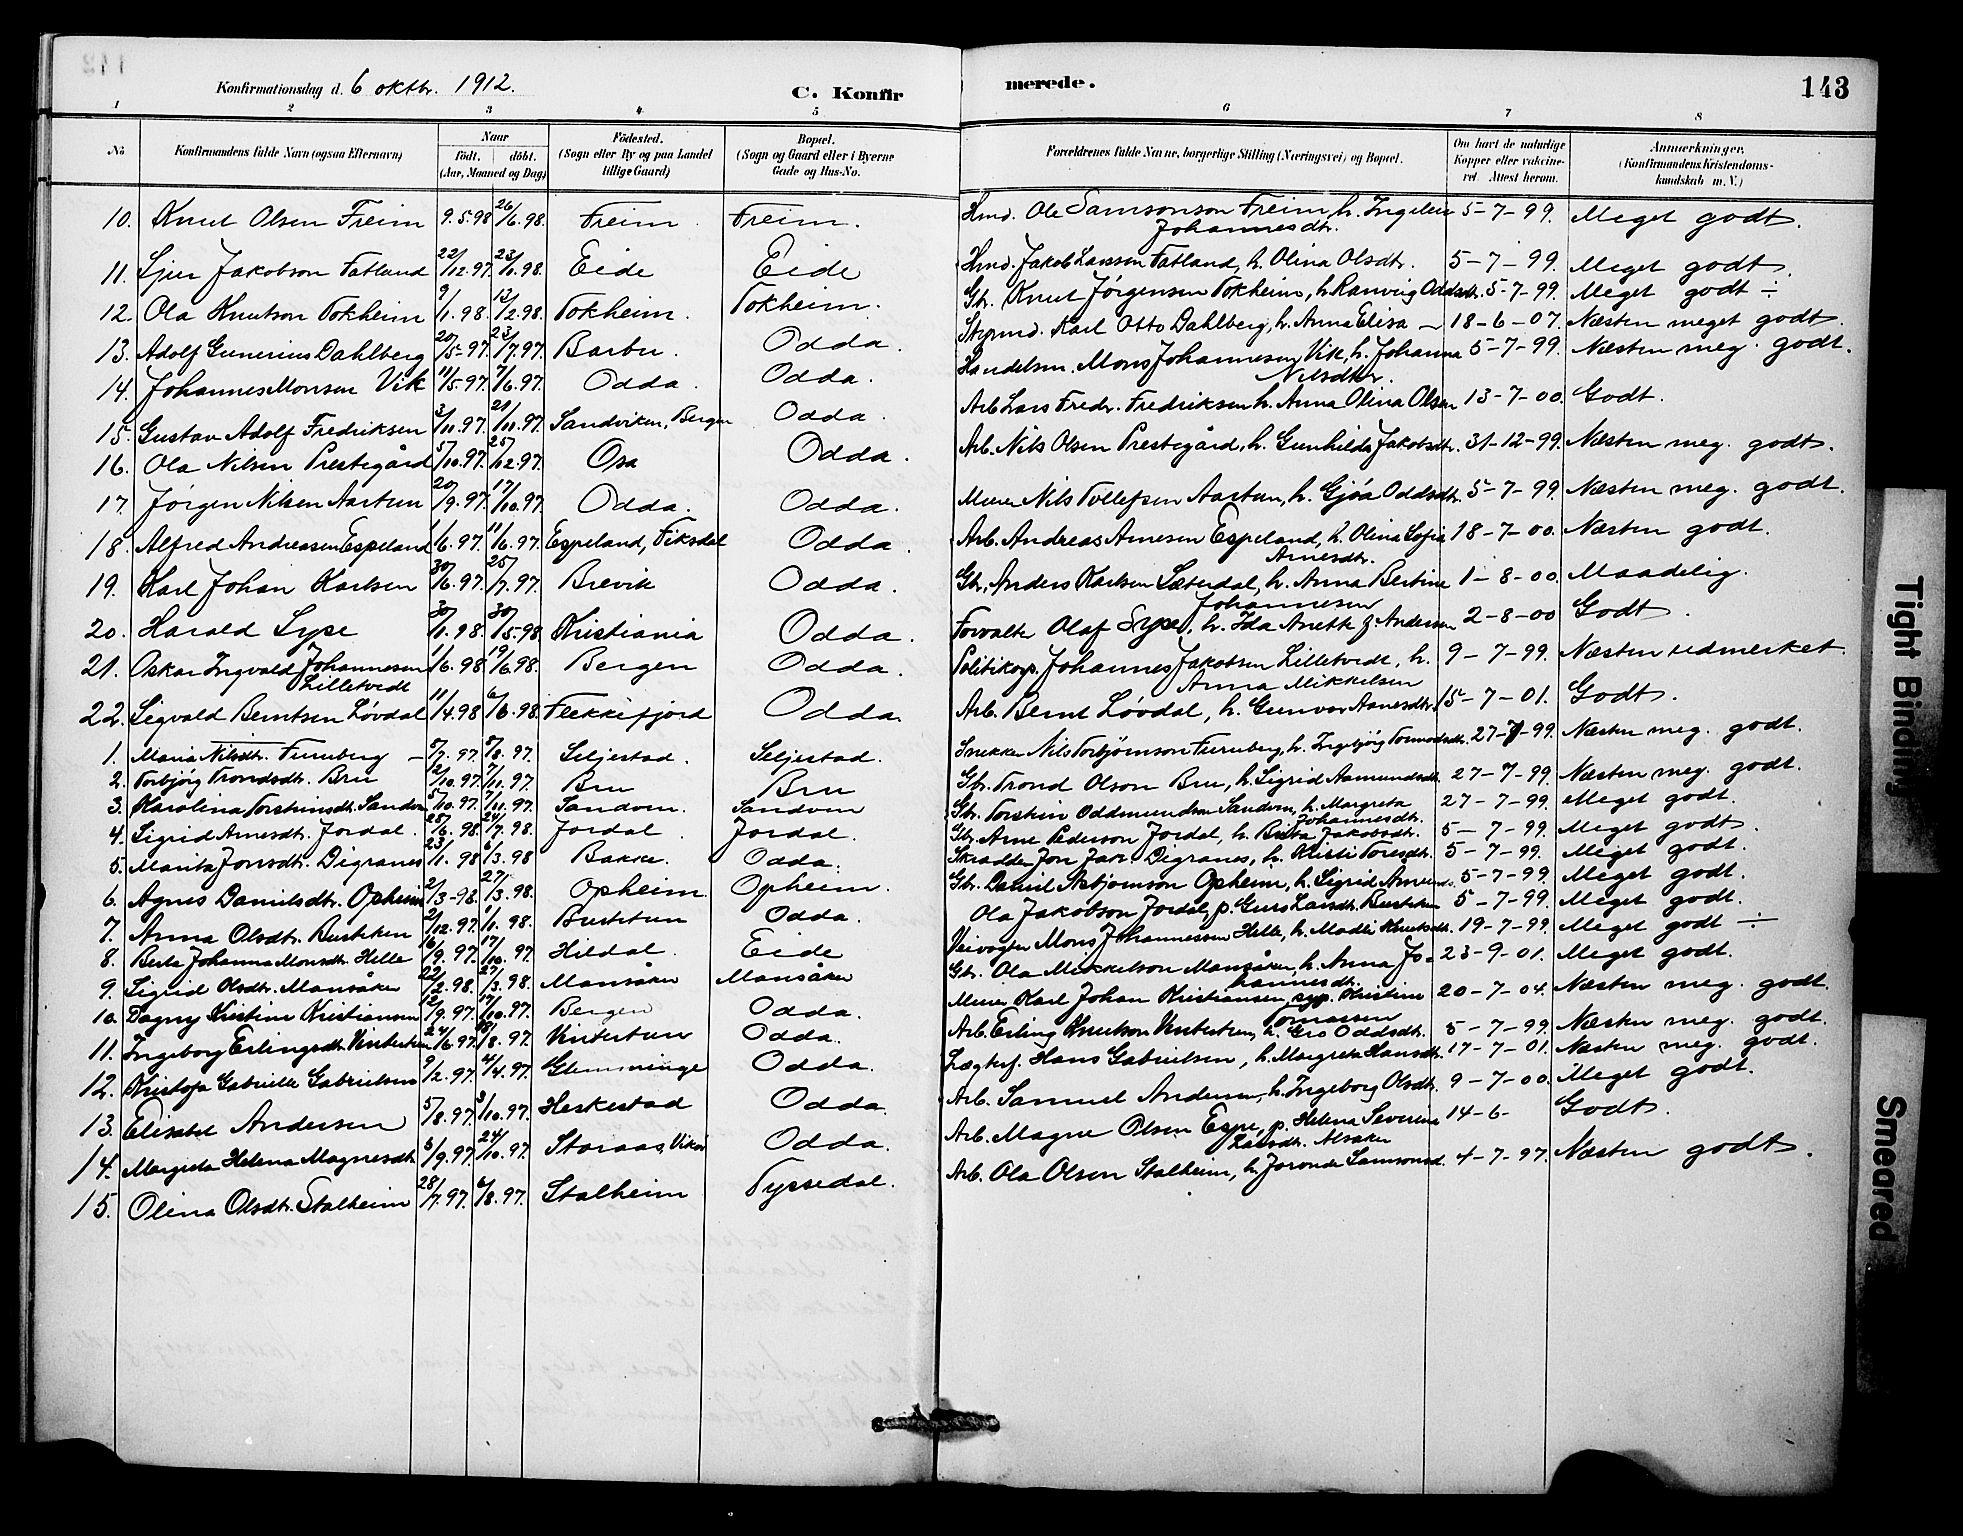 Konfirmationsdag d. 6 oktbr. 1912. C. Konfirmerede. 143
1 2 3 4 5 6 7 8
No Konfirmandens fulde Navn (ogsaa Efternavn) Naar födt. döbt. (Aar, Maaned og Dag) Födested. (Sogn eller By og paa Landet tillige Gaard) Bopæl. (Sogn og Gaard eller i Byerne Gade og Hus-No. Forældrenes fulde Navne, borgerlige Stilling (Næringsvei) og Bopæl. Om havt de naturlige Kopper eller vakcineret. Attest herom. Anmærkninger. (Konfirmandens Kristendomskundskab m. V.)
10. Knut Olsen Freim 9.5.98 26/6.98. Freim. Freim. Hmd. Ole Samsonson Freim, h. Ingeleiv Johannesdtr. 5-7-99. Meget godt.
11. Sjur Jakobson Fatland 22/12.97. 23/1.98. Eide Eide Hmd. Jakob Larssen Fatland, h. Olina Olsdtr. 5-7-99. Meget godt.
12. Ola Knutson Tokheim 9/1.98. 12/2.98. Tokheim. Tokheim. Gbr. Knut Jørgensen Tokheim, h. Ranveig Oddsdtr. 5-7-99. Meget godt ÷
13. Adolf Gunerius Dahlberg 20/5-97. 23/7.97. Barbu. Odda. Styrmd. Karl Otto Dahlberg, h. Anna Elisa — 18-6-07. Næsten meget godt.
14. Johannes Monsen Vik 11/5.97. 7/6.97. Odda. Odda. Handelsm. Mons Johannesen Vik, h. Johanna Nilsdtr. 5-7-99. Næsten meg. godt.
15. Gustav Adolf Fredriksen 3/11.97. 21/11.97. Sandviken, Bergen Odda. Arb. Lars Fredr. Fredriksen h. Anna Olina Olsen 13-7-00. Godt.
16. Ola Nilsen Prestegård 5/10.97. 25/12.97. Osa Odda. Arb. Nils Olsen Prestegård, h. Gunhilda Jakobsdtr. 31-12-99. Næsten meg. godt.
17. Jørgen Nilsen Aartun 20/9.97. 17/10.97. Odda. Odda. Murer Nils Tollefsen Aartun, h. Gjøa Oddsdtr. 5-7-99. Næsten meg. godt.
18. Alfred Andreasen Espeland 1/6.97. 11/6.97. Espeland, Fiksdal Odda. Arb. Andreas Arnesen Espeland, h. Olina Sofia Arnesdtr. 18-7-00. Næsten godt.
19. Karl Johan Karlsen 30/6.97. 25/7.97. Brevik Odda. Gbr. Anders Karlsen Sæterdal, h. Anna Bertine Johannesen 1-8-00. Maadelig.
20. Harald Sype 30/1.98. 30/5.98. Kristiania Odda. Forvalter Olaf Sype, h. Ida Anette f. Andersen 2-8-00 Godt.
21. Oskar Ingvald Johannesen Lilletvedt 1/6.98. 19/6.98. Bergen Odda. Politikop. Johannes Jakobsen Lilletvedt, h. Anna Mikkelsen 9-7-99. Næsten udmerket.
22. Sigvald Berntsen Løvdal 11/4.98 6/6.98. Flekkefjord Odda. Arb. Bernt Løvdal, h. Gunvor Aanesdtr. 15-7-01. Godt.
1. Maria Nilsdtr. Furuberg 5/7.97. 8/8.97. Seljestad. Seljestad. Snekker Nils Torbjørnson Furuberg, h. Ingebjørg Tormodsdtr. 27-7-99. Næsten meg. godt.
2. Torbjørg Trondsdtr. Bru 12/10.97. 7/11.97. Bru Bru Gbr. Trond Olson Bru, h. Sigrid Aamundsdtr. 27-7-99. Næsten meg. godt.
3. Karolina Torsteinsdtr. Sandven 5/10.97. 7/11.97. Sandven. Sandven Gbr. Torstein Oddmundson Sandven, h. Margreta Johannesdtr. 27-7-99. Meget godt.
4. Sigrid Arnesdtr. Jordal. 25/6.98. 24/7.98. Jordal. Jordal. Gbr. Arne Pederson Jordal, h. Brita Jakobsdtr. 5-7-99. Meget godt.
5. Marita Jonsdtr. Digranes 23/1.98 6/3.98 Bakke. Odda. Skrædder Jon Jak. Digranes, h. Kristi Toresdtr. 5-7-99. Meget godt.
6. Agnes Danielsdtr. Opheim 2/3-98. 27/3.98. Opheim. Opheim. Gbr. Daniel Asbjørnson Opheim, h. Sigrid 5-7-99. Meget godt.
7. Anna Olsdtr. Bustetun 2/12.97. 1/1.98. Bustetun Odda. Ola Jakobson Jordal, p. Guro Larsdtr. Bustetun 5-7-99. Meget godt.
8. Berta Johanna Monsdtr. Helle 16/9.97. 17/10.97. Hildal. Eide Veivogter Mons Johannessen Helle, h. Madli Knutsdtr. 19-7-99. Meget godt ÷
9. Sigrid Olsdtr. Mansåker 22/2.98. 27/3.98. Mansåker Mansåker Gbr. Ola Mikkelson Mansåker, h. Anna Johannesdtr. 23-9-01. Meget godt.
10. Dagny Kristine Kristiansen 12/9.97. 17/10.97. Bergen Odda. Murer Karl Johan Kristiansen, Kristine Tomassen 20-7-04. Næsten meg. godt.
11. Ingeborg Erlingsdtr. Vintertun 24/6.97. 18/8.97. Vintertun Odda. Arb. Erling Knutson Vintertun, h. Gro Oddsdtr. 5-7-99. Næsten meg. godt.
12. Kristofa Gabrielle Gabrielsen 9/2.97. 4/4.97. Glemminge Odda. Lægtorf. Hans Gabrielsen, h. Margreta Hansdtr. 17-7-01. Næsten meg. godt.
13. Elisabet Andersen 5/8.97. 3/10.97. Heskestad Odda. Arb. Samuel Andersen, h. Ingeborg Olsdtr. 9-7-00. Meget godt.
14. Margreta Helena Magnesdtr. 5/9.97. 24/10.97. Storaas, Vikør Odda. Arb. Magne Olsen Espe, p. Helena Severine Larsdtr. Alsaker 14-6- Godt.
15. Olina Olsdtr. Stalheim 28/7.97. 6/8.97. Stalheim Tyssedal. Arb. Ola Olsen Stalheim, h. Joronda Samsonsd. 4-7-97. Næsten godt.
Tight Binding
Smeared